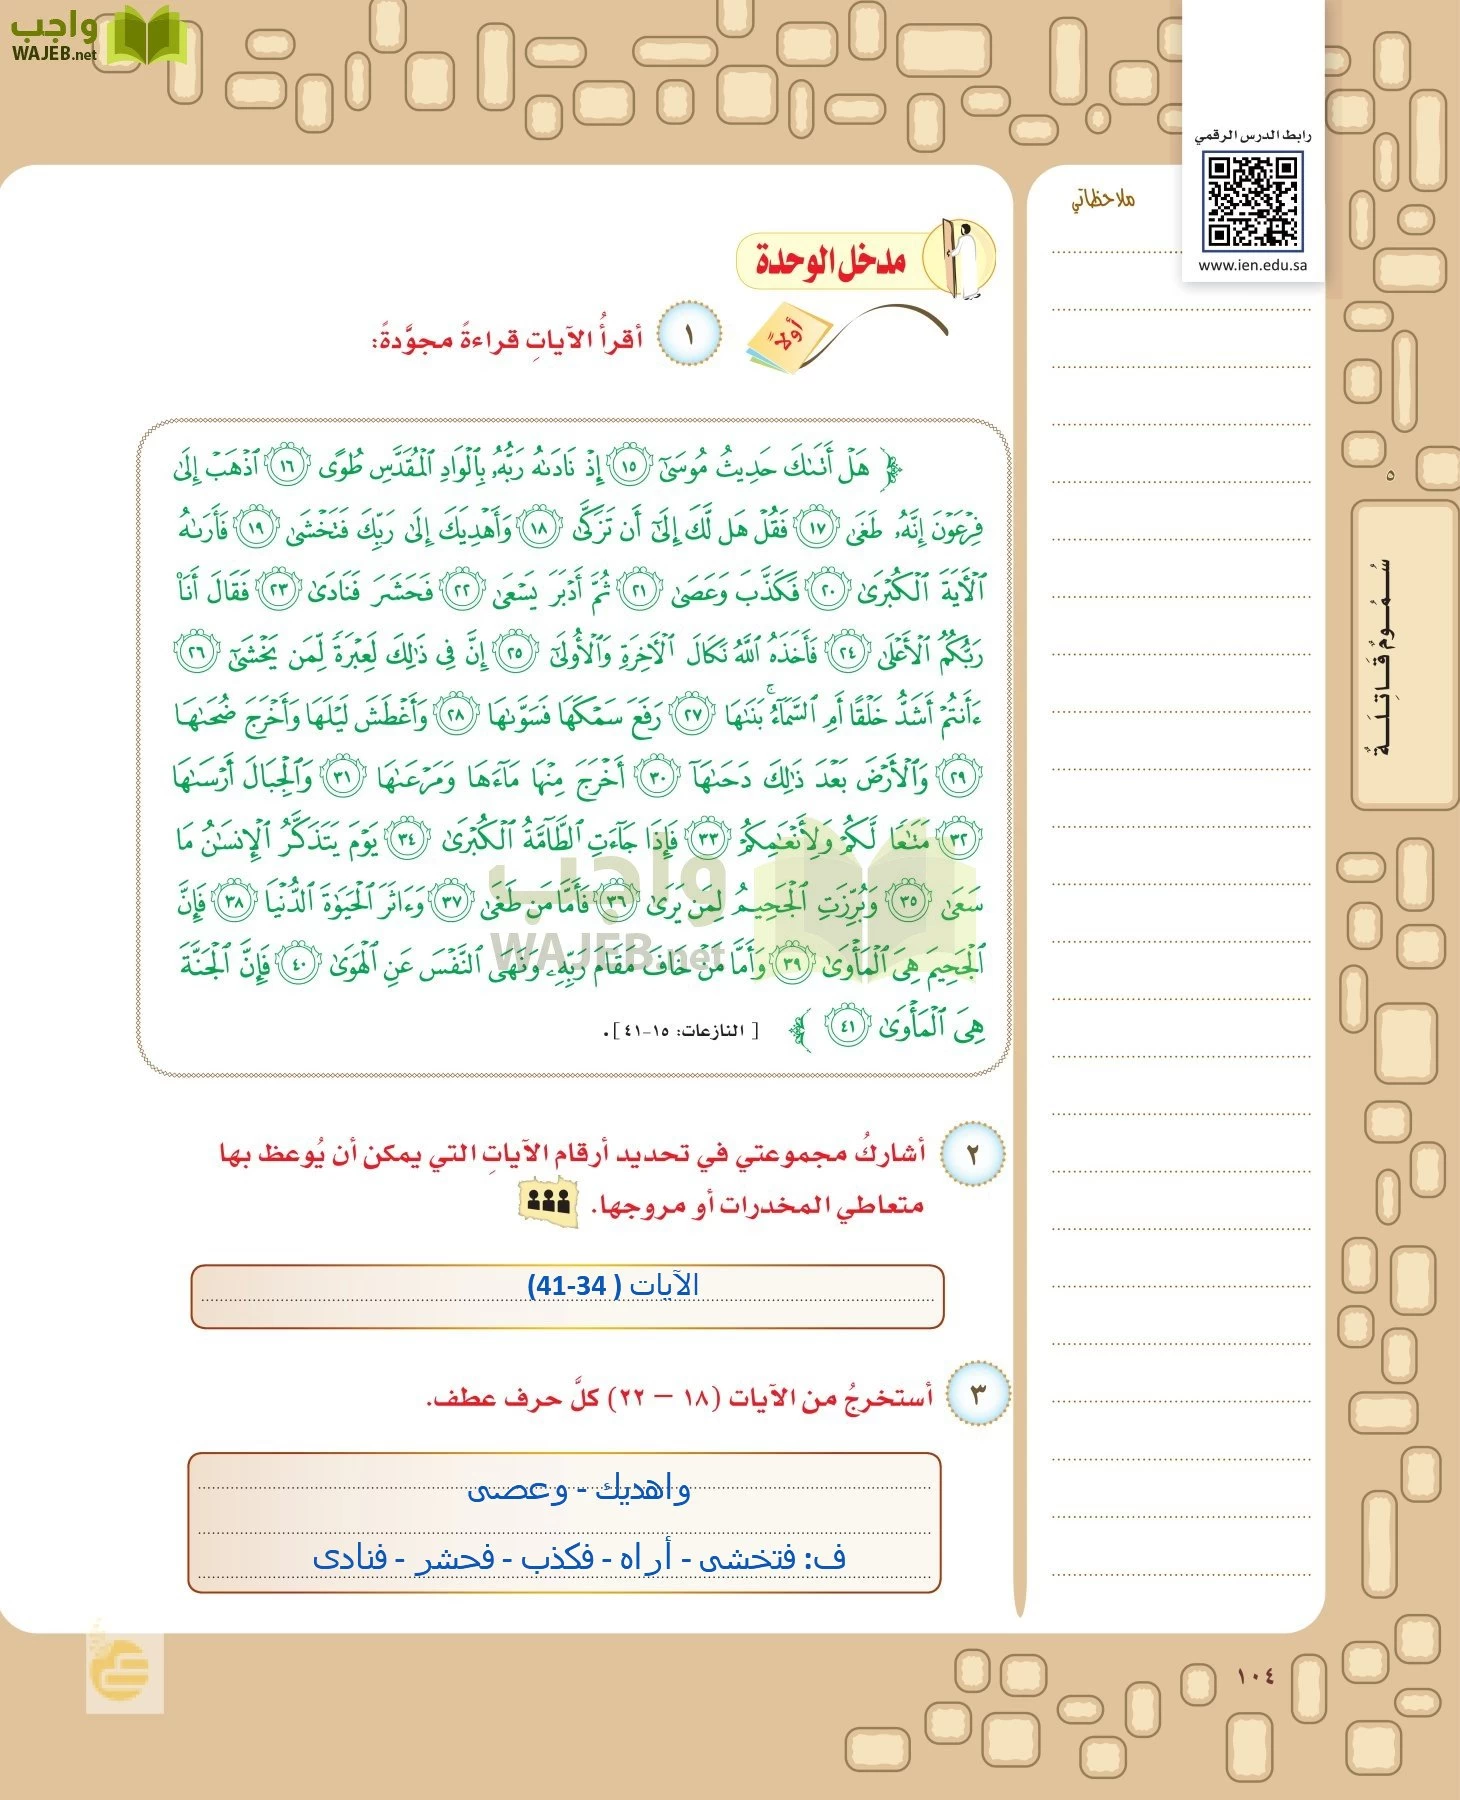 واجب
WAJEB.net
رابط الدرس الرقمي
www.ien.edu.sa
ملاحظاتي
مدخل الوحدة
أولاً
١ أقرأُ الآياتِ قراءةً مجوَّدةً:
﴿ هَلْ أَتَىٰكَ حَدِيثُ مُوسَىٰٓ ١٥ إِذْ نَادَىٰهُ رَبُّهُۥ بِٱلْوَادِ ٱلْمُقَدَّسِ طُوًى ١٦ ٱذْهَبْ إِلَىٰ
فِرْعَوْنَ إِنَّهُۥ طَغَىٰ ١٧ فَقُلْ هَل لَّكَ إِلَىٰٓ أَن تَزَكَّىٰ ١٨ وَأَهْدِيَكَ إِلَىٰ رَبِّكَ فَتَخْشَىٰ ١٩ فَأَرَىٰهُ
ٱلْـَٔايَةَ ٱلْكُبْرَىٰ ٢٠ فَكَذَّبَ وَعَصَىٰ ٢١ ثُمَّ أَدْبَرَ يَسْعَىٰ ٢٢ فَحَشَرَ فَنَادَىٰ ٢٣ فَقَالَ أَنَا۠
رَبُّكُمُ ٱلْأَعْلَىٰ ٢٤ فَأَخَذَهُ ٱللَّهُ نَكَالَ ٱلْـَٔاخِرَةِ وَٱلْأُولَىٰٓ ٢٥ إِنَّ فِى ذَٰلِكَ لَعِبْرَةً لِّمَن يَخْشَىٰٓ ٢٦
ءَأَنتُمْ أَشَدُّ خَلْقًا أَمِ ٱلسَّمَآءُ ۚ بَنَىٰهَا ٢٧ رَفَعَ سَمْكَهَا فَسَوَّىٰهَا ٢٨ وَأَغْطَشَ لَيْلَهَا وَأَخْرَجَ ضُحَىٰهَا
٢٩ وَٱلْأَرْضَ بَعْدَ ذَٰلِكَ دَحَىٰهَآ ٣٠ أَخْرَجَ مِنْهَا مَآءَهَا وَمَرْعَىٰهَا ٣١ وَٱلْجِبَالَ أَرْسَىٰهَا
٣٢ مَتَـٰعًا لَّكُمْ وَلِأَنْعَـٰمِكُمْ ٣٣ فَإِذَا جَآءَتِ ٱلطَّآمَّةُ ٱلْكُبْرَىٰ ٣٤ يَوْمَ يَتَذَكَّرُ ٱلْإِنسَـٰنُ مَا
سَعَىٰ ٣٥ وَبُرِّزَتِ ٱلْجَحِيمُ لِمَن يَرَىٰ ٣٦ فَأَمَّا مَن طَغَىٰ ٣٧ وَءَاثَرَ ٱلْحَيَوٰةَ ٱلدُّنْيَا ٣٨ فَإِنَّ
ٱلْجَحِيمَ هِىَ ٱلْمَأْوَىٰ ٣٩ وَأَمَّا مَنْ خَافَ مَقَامَ رَبِّهِۦ وَنَهَى ٱلنَّفْسَ عَنِ ٱلْهَوَىٰ ٤٠ فَإِنَّ ٱلْجَنَّةَ
هِىَ ٱلْمَأْوَىٰ ٤١ ﴾ [النازعات: ١٥-٤١].
واجب
WAJEB.net
٢ أشاركُ مجموعتي في تحديد أرقام الآياتِ التي يمكن أن يُوعظ بها
متعاطي المخدرات أو مروجها.
الآيات ( 34-41)
٣ أستخرجُ من الآيات (١٨ – ٢٢) كلَّ حرف عطف.
واهديك - وعصى
ف: فتخشى - أراه - فكذب - فحشر - فنادى
٥
سُـمُـومٌ قَـاتِـلَـةٌ
١٠٤